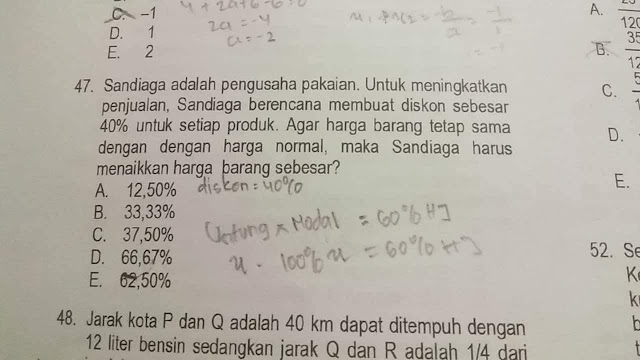 C. –1
D. 1
E. 2
2a = -4
a = -2
A.
120
B. 35
12
C. 5
D.
E.
47. Sandiaga adalah pengusaha pakaian. Untuk meningkatkan
penjualan, Sandiaga berencana membuat diskon sebesar
40% untuk setiap produk. Agar harga barang tetap sama
dengan dengan harga normal, maka Sandiaga harus
menaikkan harga barang sebesar?
A. 12,50% diskon = 40%
B. 33,33%
C. 37,50% Untung x Modal = 60% HJ
D. 66,67% u . 100% u = 60% HJ
E. 62,50%
52. Se
48. Jarak kota P dan Q adalah 40 km dapat ditempuh dengan
12 liter bensin sedangkan jarak Q dan R adalah 1/4 dari